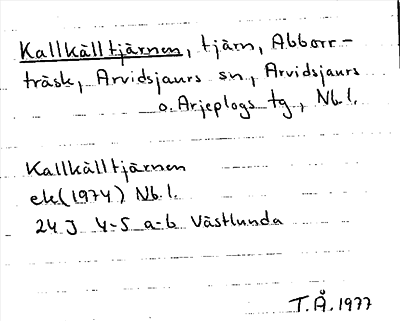 Kallkälltjärnen, tjärn, Abborr-
träsk, Arvidsjaurs sn, Arvidsjaurs
o. Arjeplogs tg, Nb. l.
Kallkälltjärnen
ek (1974) Nb. l.
24 J 4-5 a-b Västlunda
T.Å. 1977